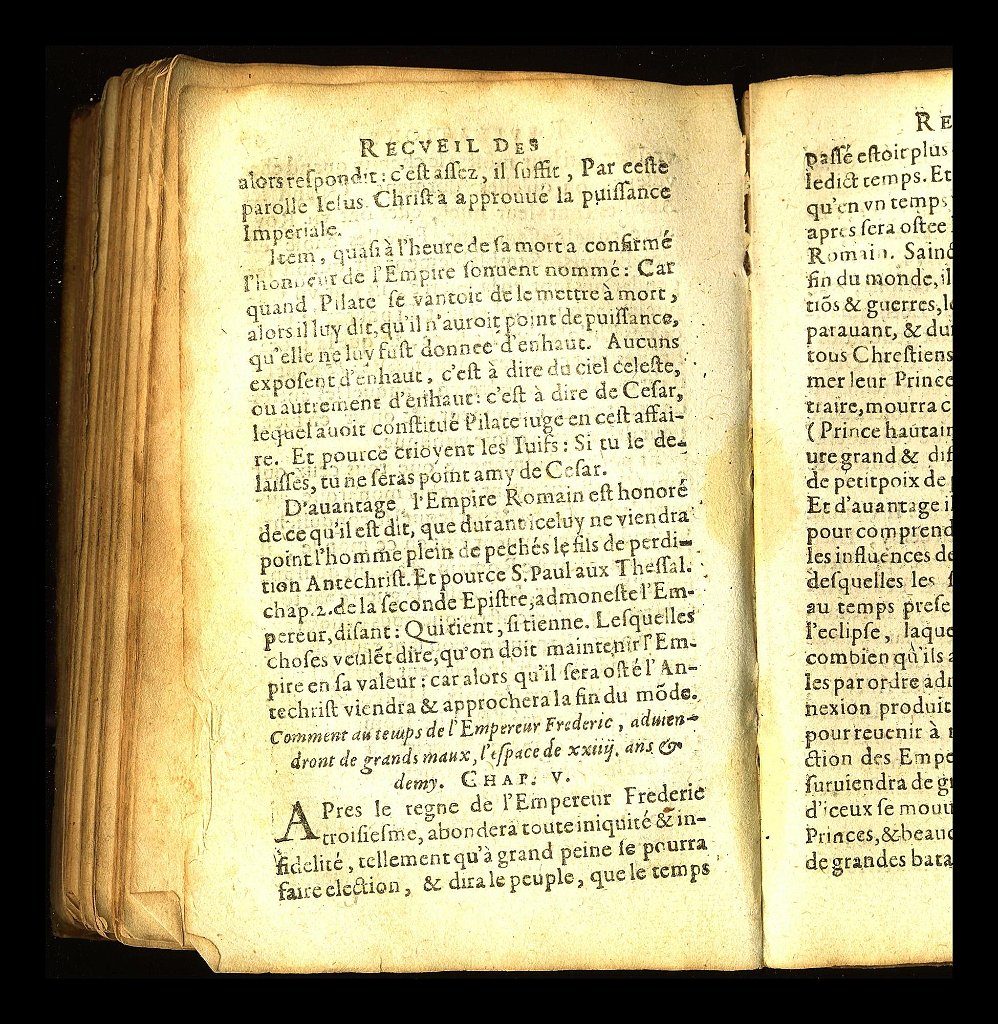 RECVEIL DES
alors respondit: c'est assez, il suffit, Par ceste
parolle Iesus Christ a approuué la puissance
Imperiale.
Item, quasi à l'heure de sa mort a confirmé
l'honneur de l'Empire souuent nommé: Car
quand Pilate se vantoit de le mettre à mort,
alors il luy dit, qu'il n'auroit point de puissance,
qu'elle ne luy fust donnee d'enhaut. Aucuns
exposent d'enhaut, c'est à dire du ciel celeste,
ou autrement d'enhaut: c'est à dire de Cesar,
lequel auoit constitué Pilate iuge en cest affai-
re. Et pource crioyent les Iuifs: Si tu le de-
laisses, tu ne seras point amy de Cesar.
D'auantage, l'Empire Romain est honoré
de ce qu'il est dit, que durant iceluy ne viendra
point l'homme plein de pechés le fils de perdi-
tion Antechrist. Et pource S. Paul aux Thessal.
chap. 2. de la seconde Epistre, admoneste l'Em-
pereur, disant: Qui tient, si tienne. Lesquelles
choses veulẽt dire, qu'on doit maintenir l'Em-
pire en sa valeur: car alors qu'il sera osté l'An-
techrist viendra & approchera la fin du mõde.
Comment au temps de l'Empereur Frederic, aduien-
dront de grands maux, l'espace de xxiiij. ans &
demy. CHAP. V.
APres le regne de l'Empereur Frederic
troisiesme, abondera toute iniquité & in-
fidelité, tellement qu'à grand peine se pourra
faire election, & dira le peuple, que le temps
RE
passé estoit plus
ledict temps. Et
qu'en vn temps
apres sera ostee
Romain. Sainc
fin du monde, il
tiõs & guerres, le
parauant, & du
tous Chrestiens
mer leur Prince
traire, mourra c
(Prince hautain
ure grand & dif
de petit poix de
Et d'auantage il
pour comprend
les influences de
desquelles les
au temps prese
l'eclipse, laque
combien qu'ils a
les par ordre adu
nexion produit
pour reuenir à
ction des Empe
suruiendra de gr
d'iceux se mouu
Princes, & beauc
de grandes bata